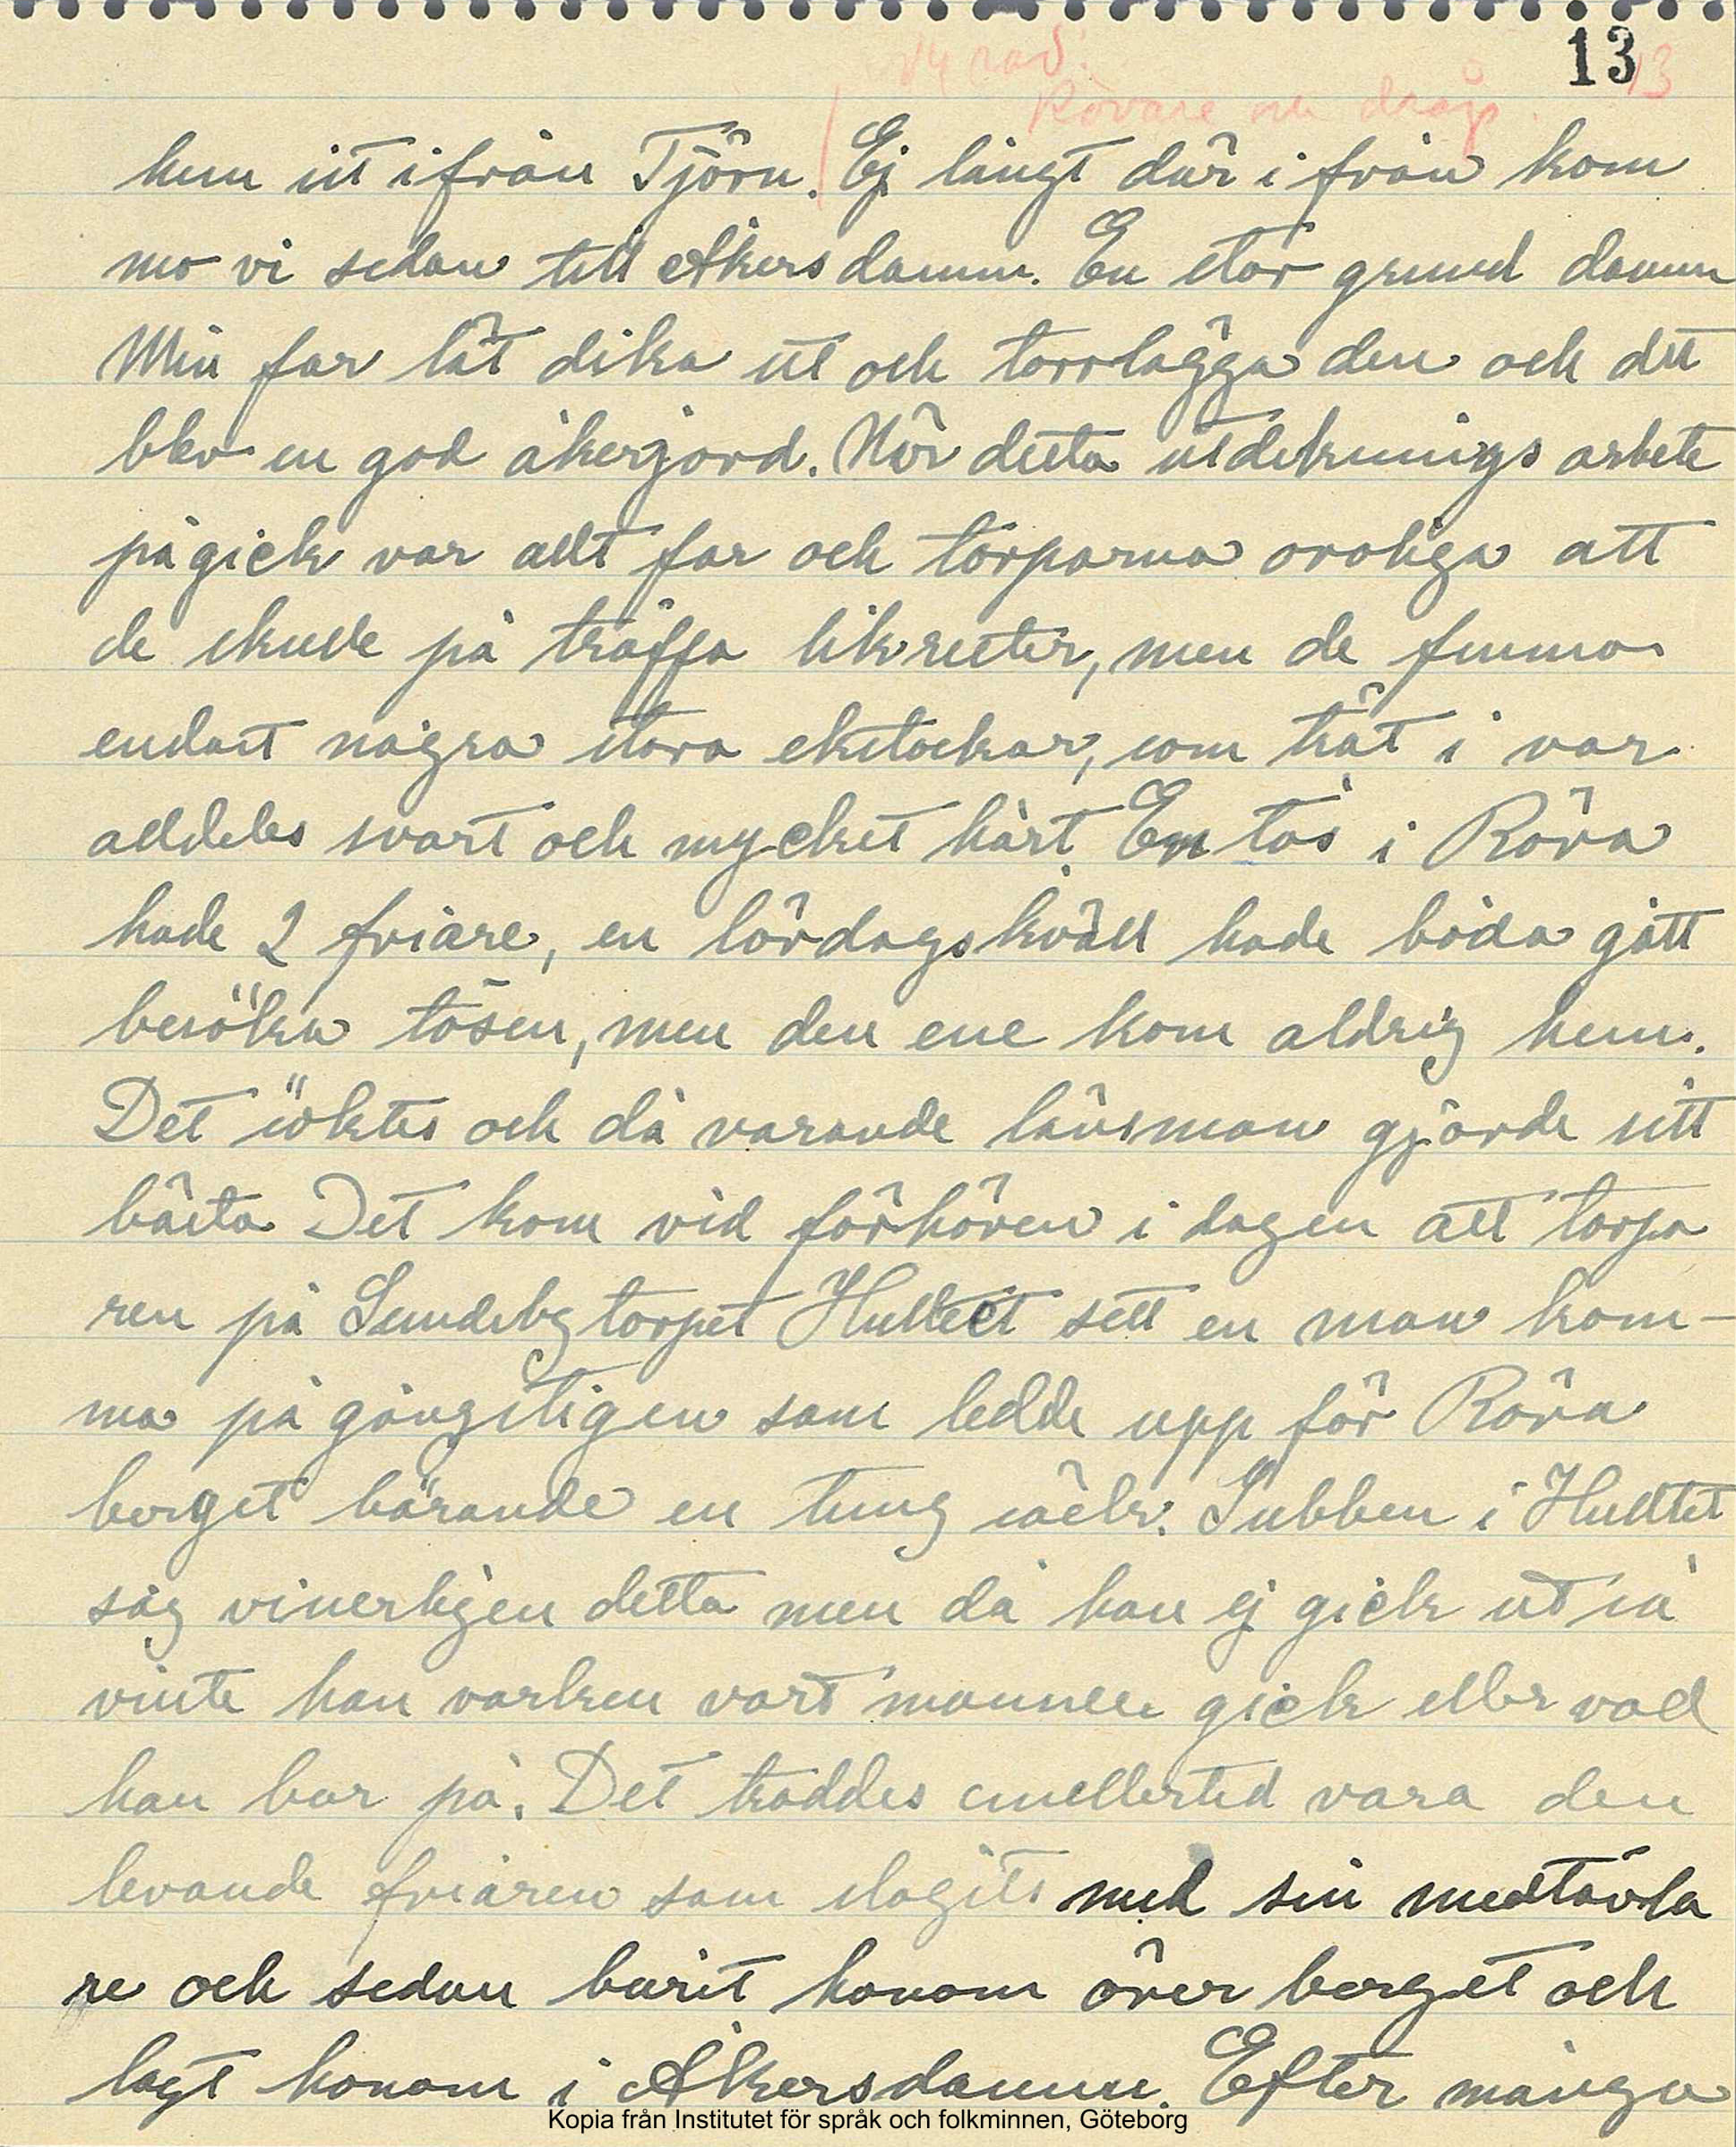 13
13
ny rad.
Rövare och dråp.
hem ut ifrån Tjörn. Ej långt där i från kom
mo vi sedan till Åkersdamm. En stor grund damm
Min far lät dika ut och torrlägga den och det
blev en god åkerjord. När detta utdiknings arbete
pågick var allt far och torparna oroliga att
de skulle på träffa likrester, men de funno
endast några stora ekstockar, som trät i var
alldeles svart och mycket hårt. En tös i Röra
hade 2 friare, en lördagskväll hade båda gått
besöka tösen, men den ene kom aldrig hem.
Det söktes och då varande länsman gjorde sitt
bästa Det kom vid förhören i dagen att torpa
ren på Sundsby torpet Hultet sett en man kom-
ma på gångstigen som ledde upp för Röra
berget bärande en tung säck. Gubben i Hultet
såg vinerligen detta men då han ej gick ut så
viste han varken vart mannen gick eller vad
han bar på. Det troddes emellertid vara den
levande friaren som slagits med sin medtävla
re och sedan burit honom över berget och
lagt honom i Åkersdamm. Efter många
Kopia från Institutet för språk och folkminnen, Göteborg